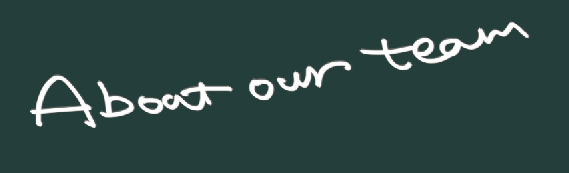 About our team